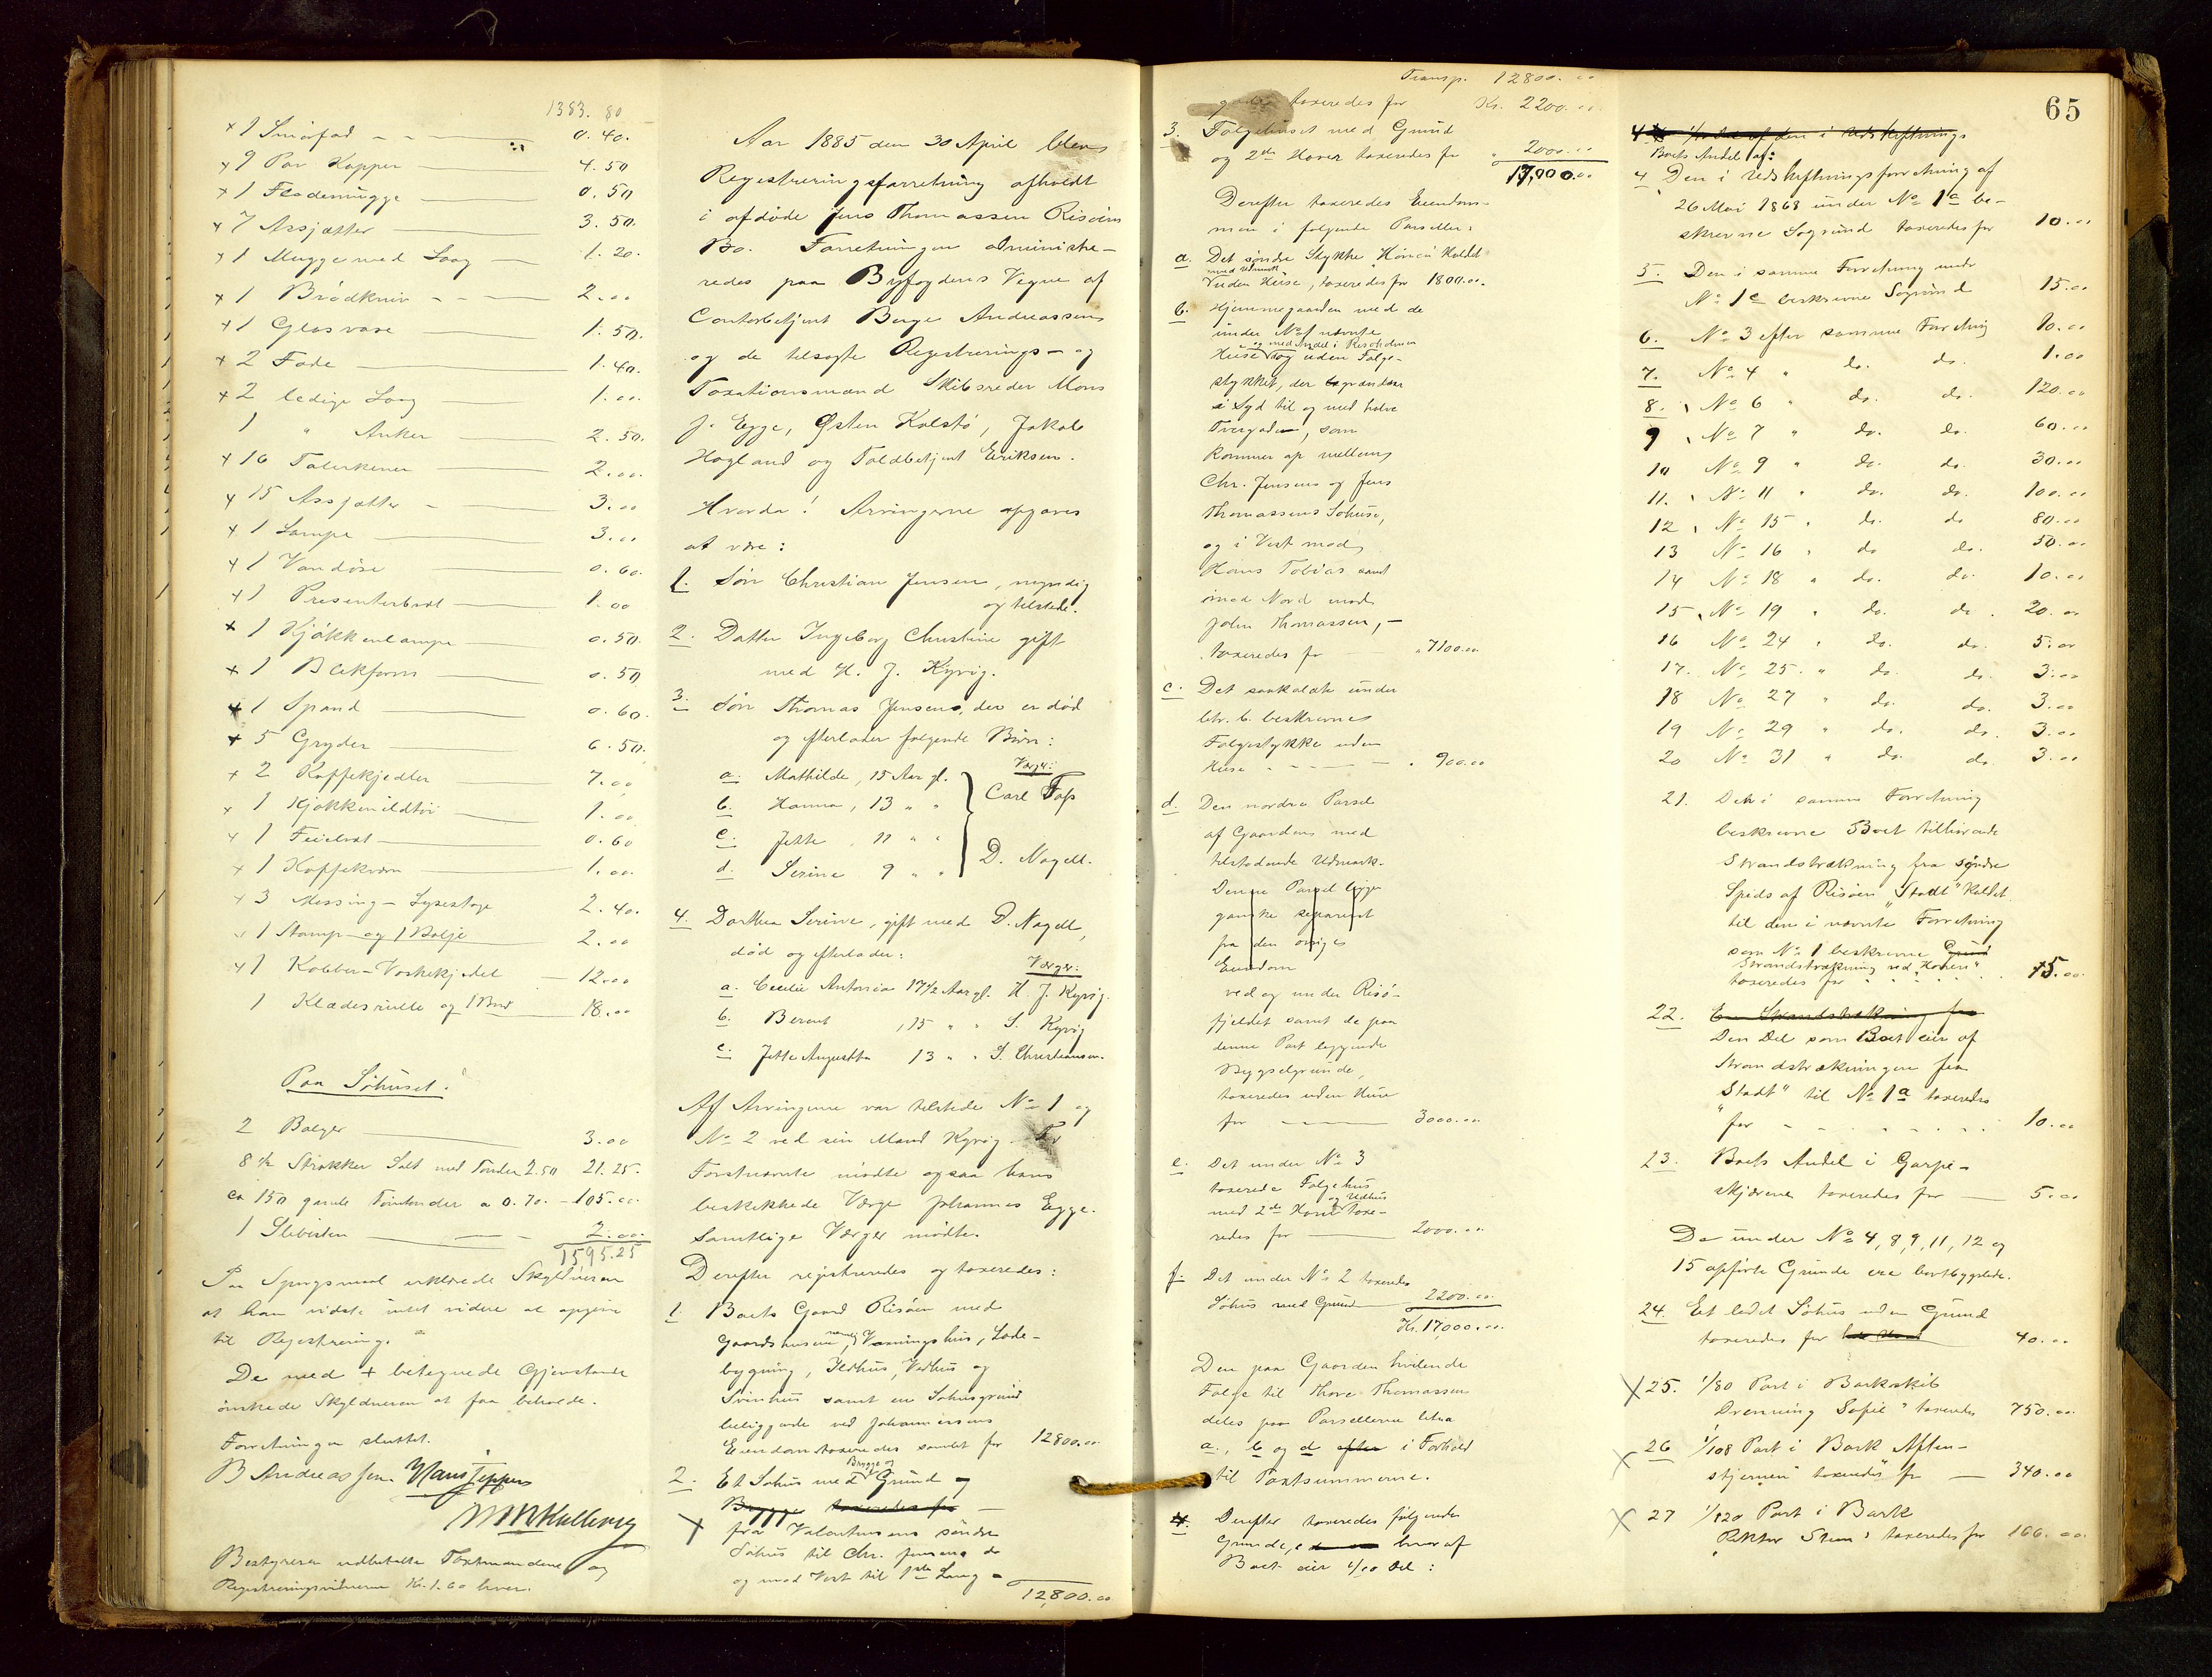 1383. 80
+ 1 Smörfad 0. 40.
+ 9 Par Kopper 4. 50
+ 1 Flødemugge 0. 50
+ 7 Assjetter 3. 50.
+ 1 Mugge med Laag 1. 20.
+ 1 Brødkniv 2. 00
+ 1 Glasvase 1. 50.
+ 2 Fade 1. 40.
+ 2 ledige Laag 1. 00.
1 " Anker 2. 50.
+ 16 Talerkener 2. 00.
+ 15 Assjetter 3. 00
+ 1 Lampe 3. 00
+ 1 Vandöse 0. 60.
+ 1 Presenterbret 1. 00
+ 1 Kjökkenlampe 0. 50.
+ 1 Blikform 0. 50
+ 1 Spand 0. 60.
+ 5 Gryder 6. 50.
+ 2 Kaffekjedler 7. 00
+ 1 Kjökkenildtöi 1. 00
+ 1 Feiebret 0. 60
+ 1 Kaffekværn 1. 00.
+ 3 Messing-Lysestage 2. 40.
+ 1 Stamp og 1 Balje 2. 00
+ 1 Kobber-Vaskekjedel 12. 00
1 Klædesrulle og 1 Bord 18. 00
Paa Söhuset:
2 Balger 3. 00
8 ½ Strökker Salt med Tönder 2. 50 21. 25.
ca 150 gamle Tomtönder a 0. 70. 105. 00.
1 Slibesten 2. 00.
1595. 25
Paa Spørgsmaal erklærede Skyldneren
at han vidste intet videre at opgive
til Registrering.
De med + betegnede Gjenstande
önskede Skyldneren at faa beholde.
Forretningen sluttet.
B Andreassen. Hans Jeppesen
Bestyreren udbetalte Taxtmændene og
Registreringsvidnerne Kr. 1. 60 hver.
Aar 1885 den 30 April blev
Registreringsforretning afholdt
i afdöde Jens Thomassen Risöens
Bo. Forretningen administre-
redes paa Byfogdens Vegne af
Contorbetjent Berge Andreassen
og de tilsagte Registrerings- og
Taxationsmænd Skibsreder Mons
J. Egge, Østen Kolstö, Jakob
Hogland og Toldbetjent Eriksen.
Hvorda! Arvingerne opgaves
at være:
1. Sön Christian Jensen, myndig
og tilstede.
2. Datter Ingeborg Christine gift
med H. J. Kyvig.
3. Sön Thomas Jensen, der er död
og efterlader følgende Børn:
Værge:
a. Mathilde, 15 Aar gl. Carl Fass
b. Hanna, 13 " "
c. Jette, 11 " "
d. Serine 9 " " D. Nagell.
4. Dorthea Serine, gift med D. Nagell,
död og efterlader:
Værger:
a. Cecilie Antonia 17½ Aar gl. H. J. Kyvig.
b. Berent , 15 " " S. Kyvig
c. Jette Augusta 13 " " S. Christiansen.
Af Arvingerne var tilstede No 1 og
No 2 ved sin Mand Kyvig. For
Förstnævnte mödte ogsaa hans
beskikkede Værge Johannes Egge.
Samtlige Værger mödte.
Derefter registreredes og taxeredes:
1. Boets Gaard Risöen med
Gaardshusene, nemlig Vaaningshus, Lade-
bygning, Ildhus, Vedhus og
Svinhus samt en Söhusgrund
beliggende ved Johannessens
Eiendom taxeredes samlet for 12800. 00
2. Et Söhus med Brygge og Grund
Brygge taxeredes for
fra Valentinsens søndre
Söhus til Chr. Jensens do
og mod Vest til 1ste Laug-
12,800. 00
Transp. 12800. 00
taxeredes for Kr. 2200. 00
3. Følgehuset med Grund
og 2de Haver taxeredes for " 2000. 00
17,000. 00
Derefter taxeredes Eiendom-
men i følgende Parseller:
a. Det søndre Stykke "Hönen" Kaldet
med Udmark
uden Huse, taxeredes for 1800. 00.
b. Hjemmegaarden med de
under No 1 nævnte
og med Andel i Risöholmen
Huse og uden Følge-
stykket, der begrændses
i Syd til og med halve
Tvergaden, som
kommer op mellem
Chr. Jensens og Jens
Thomassens Söhuse,
og i Vest mod
Hans Tobias samt
imod Nord mod
John Thomassen, -
taxeredes for " 7100. 00
c. Det saakaldte under
litr. b. beskrevne
Følgestykke uden
Huse " 900. 00
d. Den nordre Parsel
af Gaarden med
tilstødende Udmark.
Denne Parsel ligger
ganske separeret
fra den øvrige
Eiendom
ved og under Risö-
fjeldet samt de paa
denne Part liggende
Bygselgrunde,
taxeredes uden Huse
for 3000. 00
e. Det under No 3
taxerede Følgehus
og Udhus
med 2de Haver taxe-
redes for 2000. 00
f. Det under No 2 taxerede
Söhus med Grund 2200. 00
Kr. 17,000. 00
Den paa Gaarden hvilende
Følge til Thore Thomassen
deles paa Parsellerne litra
a., b og d efter i Forhold
til Taxtsummerne.
4. Derefter taxeredes følgende
Grunde, hvoraf
Boet eier 1/10 Del:
65
4 1/10 Del af den i Udskiftnings
Boets Andel af:
4 Den i Udskiftningsforretning af
26 Mai 1868 under No 1a be-
skrevne Søgrund taxeredes for 10. 00
5. Den i samme Forretning under
No 1c beskrevne Søgrund 15. 00
6. No 3 efter samme Forretning 10. 00
7. No 4 " do. do. 1. 00
8. No 6 " do. do. 120. 00
9 No 7 " do. do. 60. 00
10 No 9 " do. do. 30. 00
11. No 11 " do. do. 100. 00
12 No 15 " do. do 80. 00
13 No 16 " do do. 50. 00
14 No 18 " do. do. 10. 00
15 No 19 " do. do. 20. 00
16 No 24 " do. do. 5. 00
17. No 25. " do. do. 3. 00
18 No 27 " do. do. 3. 00
19 No 29 " do. do. 3. 00
20 No 31 " do. do. 3. 00
21. Den i samme Forretning
beskrevne Boet tilhörende
Strandstrækning fra søndre
Spids af Risöen "Stadt" kaldet
til den i nævnte Forretning
som No 1 beskrevne Grund
Strandstrækning ved "Honen"
taxeredes for 15. 00
22. En Strandstrækning fra
Den Del som Boet eier af
Strandstrækningen fra
"Stadt" til No 1a taxeredes
for 10. 00
23. Boets Andel i Garpe-
skjærene taxeredes for 5. 00
De under No 4, 8, 9, 11, 12 og
15 opförte Grunde ere bortbygslede.
24. Et ledet Söhus uden Grund
taxeredes for 40. 00
X 25. 1/80 Part i Barkskib
"Dronning Sofie" taxeredes 750. 00
X 26 1/108 Part i Bark "Aften-
stjernen" taxeredes for 340. 00
X 27 1/120 Part i Bark
"Rektor Steen" taxeredes for 166. 00